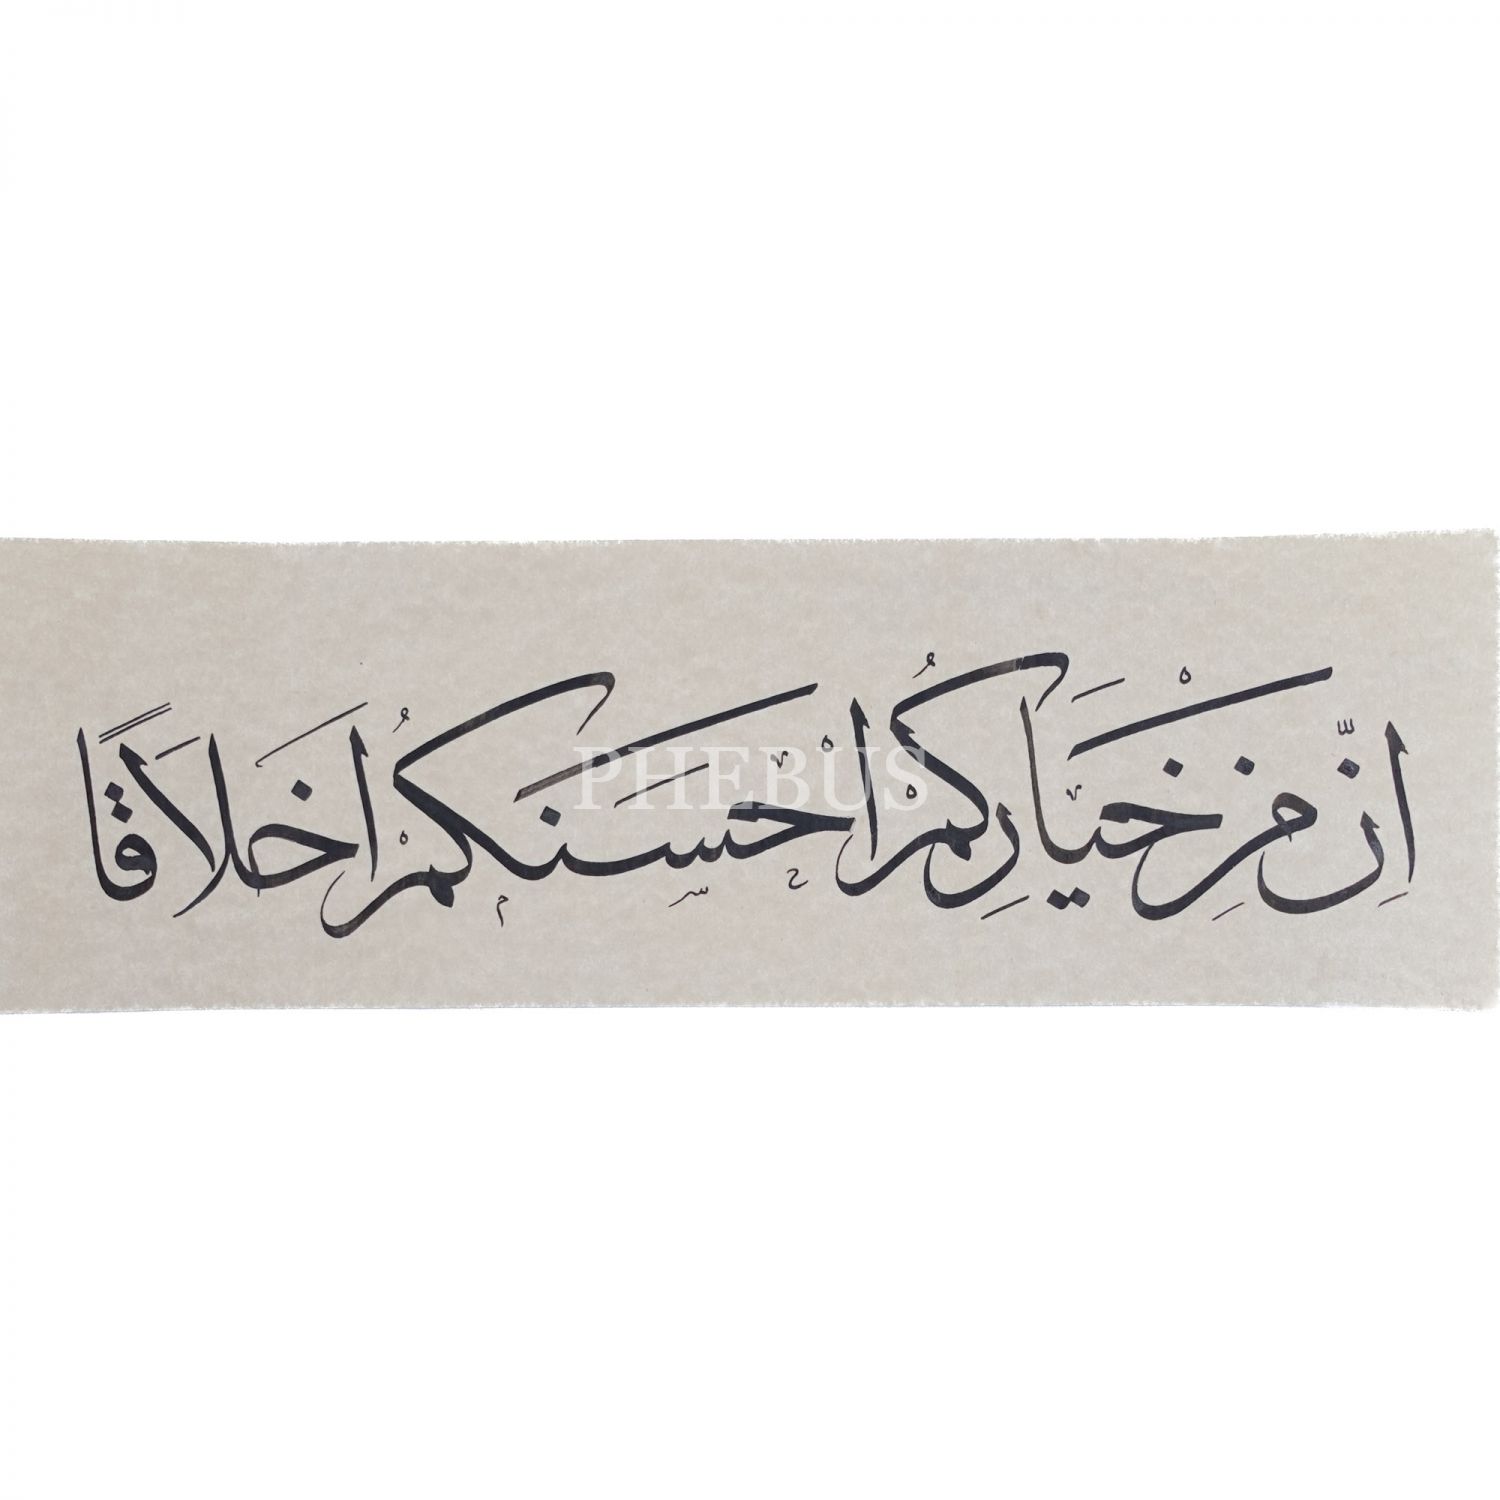 اِنَّ مِنْ خِيَارِكُمْ اَحْسَنَكُمْ اَخْلَاقًا
PHEBUS